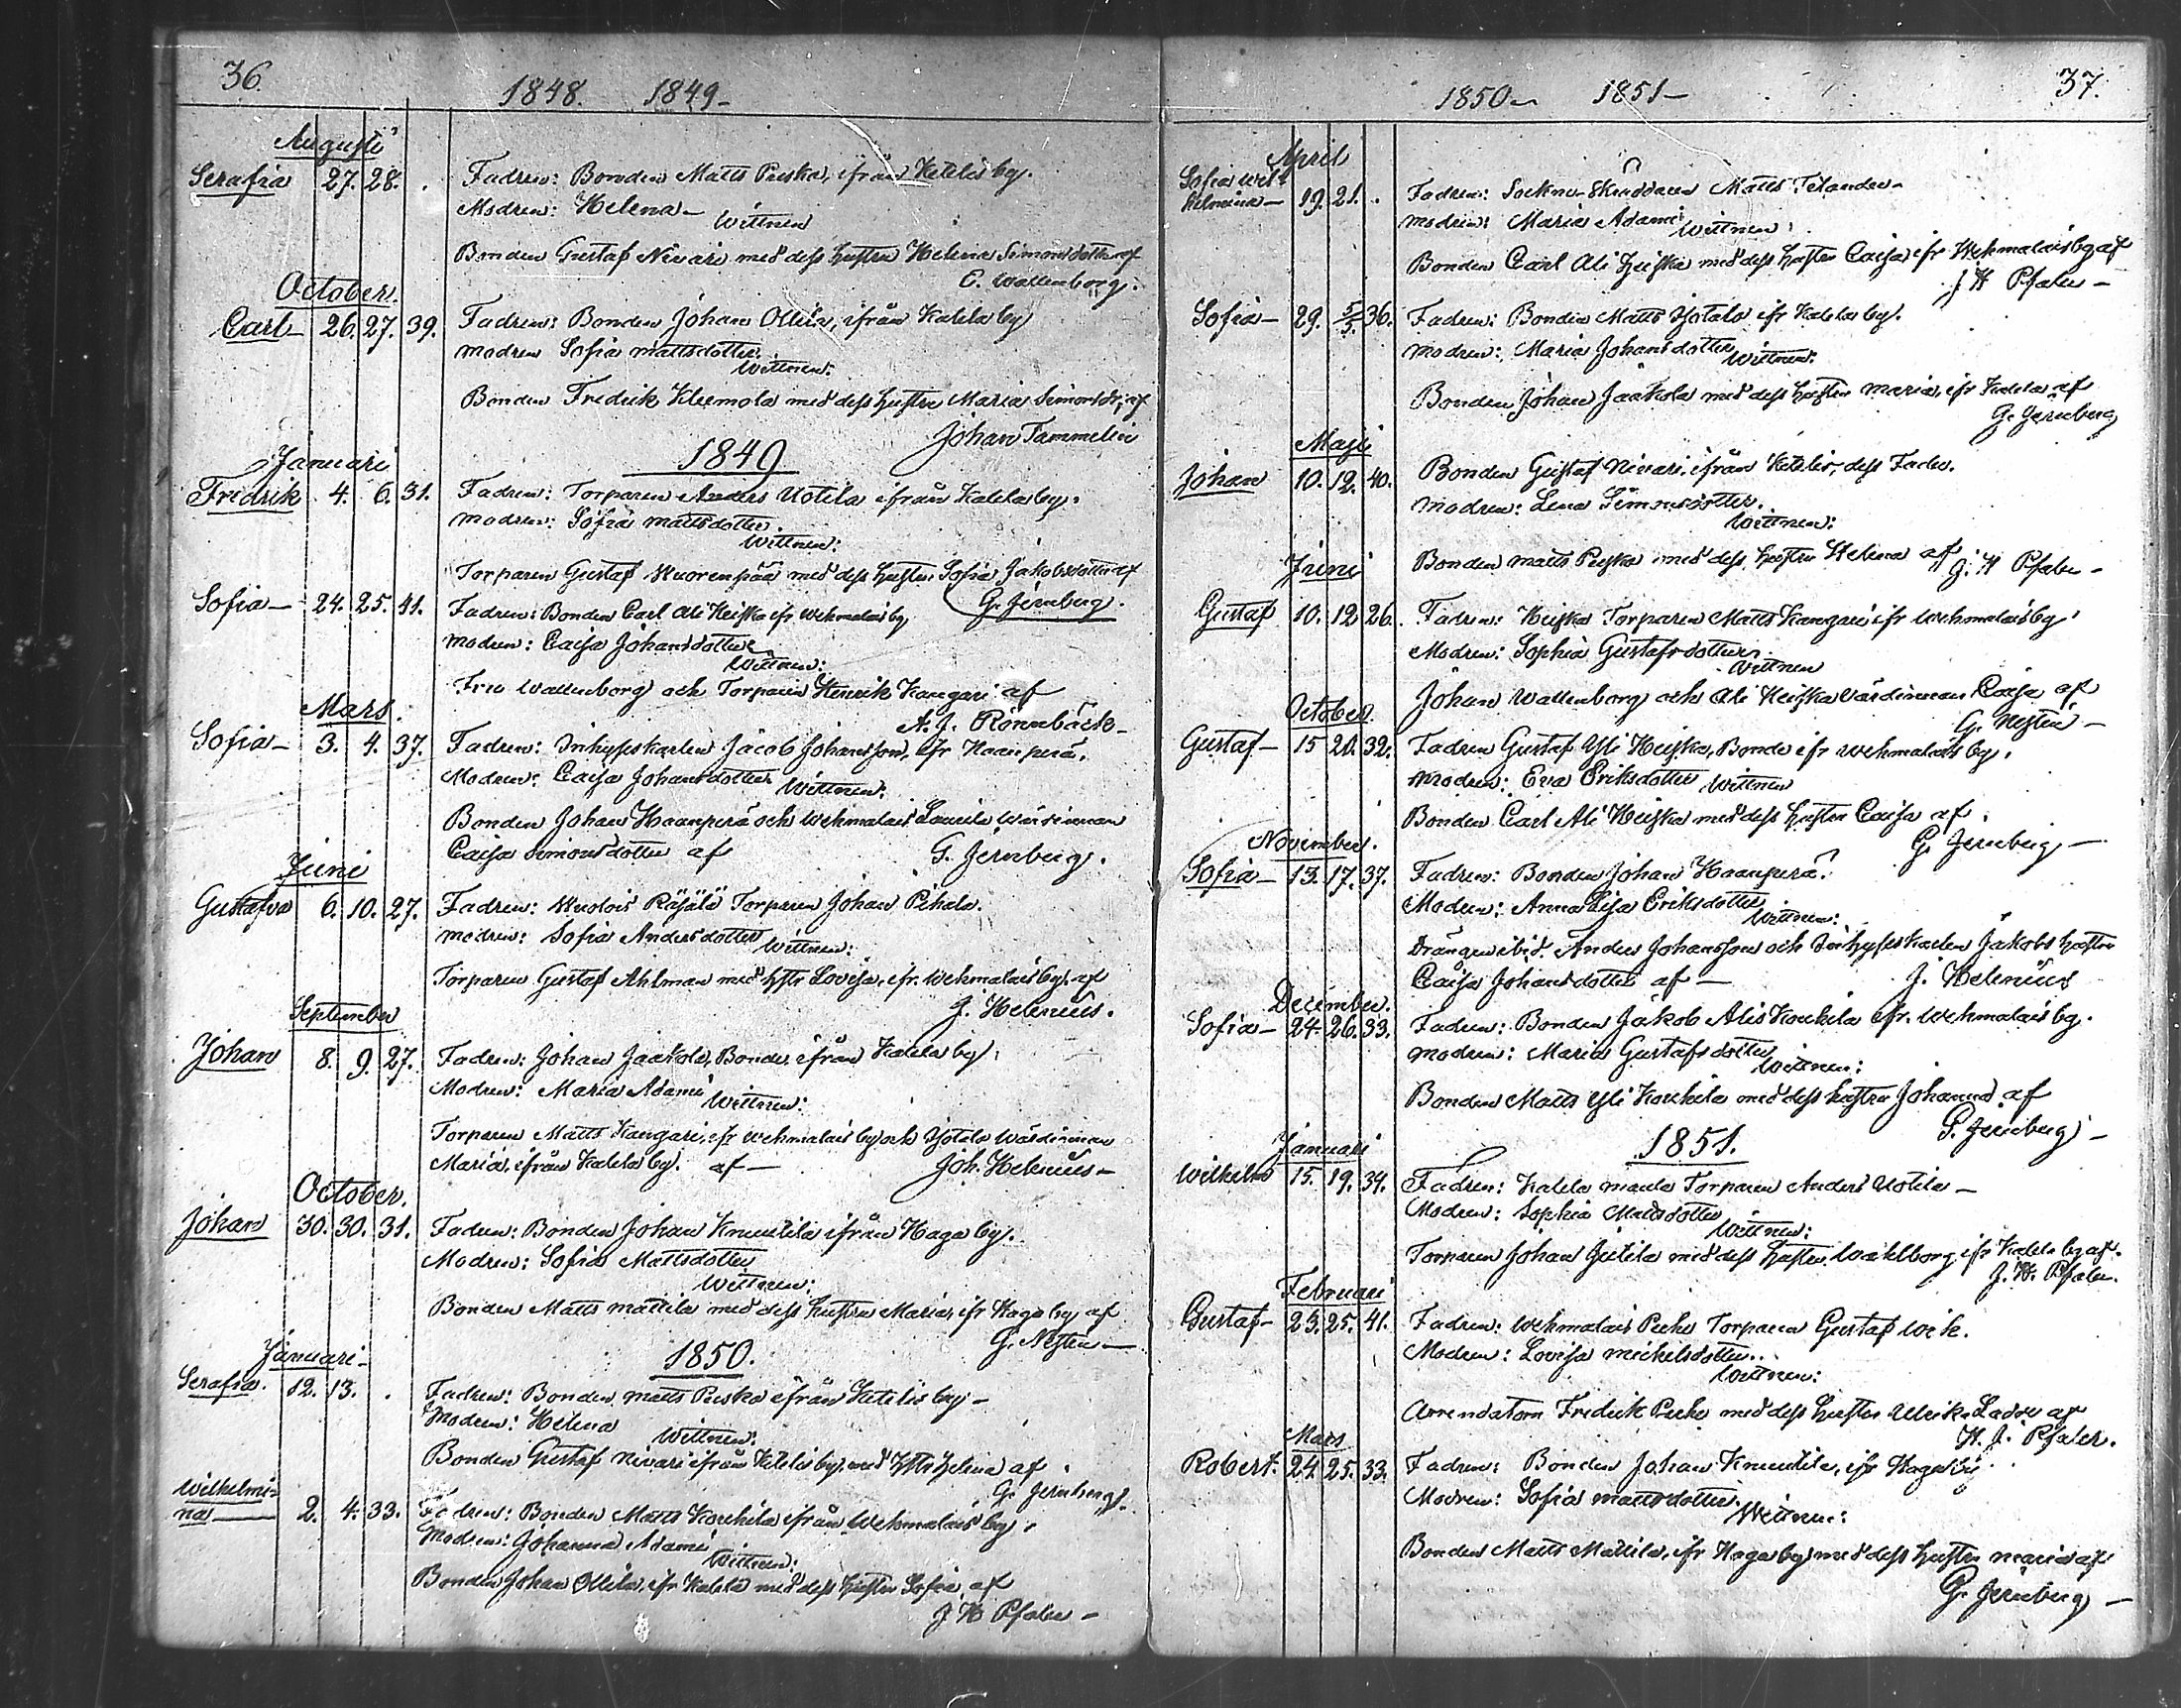 36.
1848. 1849-
Augusti
Serafia 27. 28. . Fadren: Bonden Matts Puska, ifrån Ketelis by.
Modren: Helena-
Wittnen
Bonden Gustaf Nivari med dess hustru Helena Simonsdotter af
C. Wallenborg.
October.
Carl- 26. 27. 39. Fadren: Bonden Johan Ollila, ifrån Kalela by
Modren Sofia Mattsdotter.
Wittnen:
Bonden Fredrik Klemola med dess hustru Maria Simonsdr, af
Johan Tammelin
1849
Januari
Fredrik 4. 6. 31. Fadren: Torparen Anders Uotila ifrån Kalela by.
Modren: Sofia Mattsdotter.
Wittnen:
Torparen Gustaf Kuorenpää med dess hustru Sofia Jakobsdotter af
G. Jernberg.
Sofia- 24. 25. 41. Fadren: Bonden Carl Ali Heiska ifr Wehmalais by
Modren: Caisa Johansdotter
Wittnen:
Fru Wallenborg och Torparen Henrik Kangari af
A. J. Rönnbäck-
Mars.
Sofia- 3. 4. 37. Fadren: Inhyseskarlen Jacob Johansson, ifr Haanperä.
Modren: Caisa Johansdotter
Wittnen:
Bonden Johan Haanperä och Wehmalais Laurila Wärdinnan
Caisa Simonsdotter af G. Jernberg.
Juni
Gustafva 6. 10. 27. Fadren: Kuolois Räsälä Torparen Johan Pihala.
Modren: Sofia Andersdotter
Wittnen:
Torparen Gustaf Ahlman med hstr Lovisa, ifr. Wehmalais by. af
J. Helenius.
September
Johan 8. 9. 27. Fadren: Johan Jaakola, Bonde, ifrån Kalela by.
Modren: Maria Adami
Wittnen:
Torparen Matts Kangari, ifr Wehmalais by och Yotala Wärdinnan
Maria, ifrån Kalela by. af- Joh. Helenius-
October.
Johan 30. 30. 31. Fadren: Bonden Johan Knuutila ifrån Haga by.
Modren: Sofia Mattsdotter
Wittnen:
Bonden Matts Mattila med dess hustru Maria, ifr Haga by af
G. Neste-
1850.
Januari-
Serafia. 12. 13. . Fadren: Bonden Matts Puska ifrån Ketelis by-
Modren: Helena
Wittnen:
Bonden Gustaf Nivari ifrån Ketelis by, med hstr Helena af
G. Jernberg.
Wilhelmi-
na 2. 4. 33. Fadren: Bonden Matts Korkila ifrån Wehmalais by.
Modren: Johanna Adami
Wittnen:
Bonden Johan Ollila, ifr Kalela med dess hustru Sofia, af
J H Pfaler-
37.
1850- 1851-
April
Sofia Wil-
helmina- 19. 21. . Fadren: Sockne-Skräddaren Matts Telander-
Modren: Maria Adami
Wittnen:
Bonden Carl Ali Heiska med dess hustru Caisa ifr Wehmalais by af
J H Pfaler-
Sofia- 29. 5/5. 36. Fadren: Bonden Matts Yotala ifr Kalela by.
Modren: Maria Johansdotter
Wittnen:
Bonden Johan Jaakola med dess hustru Maria, ifr Kalela af
G. Jernberg
Maji
Johan 10. 12. 40. Bonden Gustaf Nivari ifrån Ketelis, dess Fader.
Modren: Lena Simonsdotter.
Wittnen:
Bonden Matts Puska med dess hustru Helena af J. H Pfaler-
Juni
Gustaf 10. 12 26. Fadren: Heiska Torparen Matts Kangari ifr Wehmalais by.
Modren: Sophia Gustafsdotter.
Wittnen
Johan Wallenborg och Ali Heiska Värdinnan Caisa af
G. Nesten-
October.
Gustaf- 15 20. 32. Fadren Gustaf Yli Heiska, Bonde ifr Wehmalais by.
Modren: Eva Eriksdotter
Wittnen
Bonden Carl Ali Heiska med dess hustru Caisa af.
G. Jernberg-
November.
Sofia- 13. 17. 37. Fadren: Bonden Johan Haanperä.
Modren: Anna Lisa Eriksdotter
Wittnen:
Drängen ibid. Anders Johansson och Inhyseskarlen Jakobs hustru
Caisa Johansdotter af- J. Helenius
December.
Sofia- 24. 26. 33. Fadren: Bonden Jakob Alis Korkila ifr. Wehmalais by.
Modren: Maria Gustafsdotter
Wittnen:
Bonden Matts Yli Korkila med dess hustru Johanna af
G. Jernberg-
1851.
Januari
Wilhelm 15. 19. 34. Fadren: Kalela Torparen Anders Uotila-
Modren: Sophia Mattsdotter
Wittnen:
Torparen Johan Jutila med dess hustru Walborg ifr Kalela by af.
J. H. Pfaler.
Februari
Gustaf- 23. 25. 41. Fadren: Wehmalais Torparen Gustaf Wik.
Modren: Lovisa Mickelsdotter.
Wittnen:
Arrendatorn Fredrik med dess hustru Ulrika af
H. J. Pfaler.
Mars
Robert. 24. 25. 33. Fadren: Bonden Johan Knuutila, ifr Haga by
Modren: Sofia Mattsdotter.
Wittnen:
Bonden Matts Mattila, ifr Haga by med dess hustru Maria af
G. Jernberg-